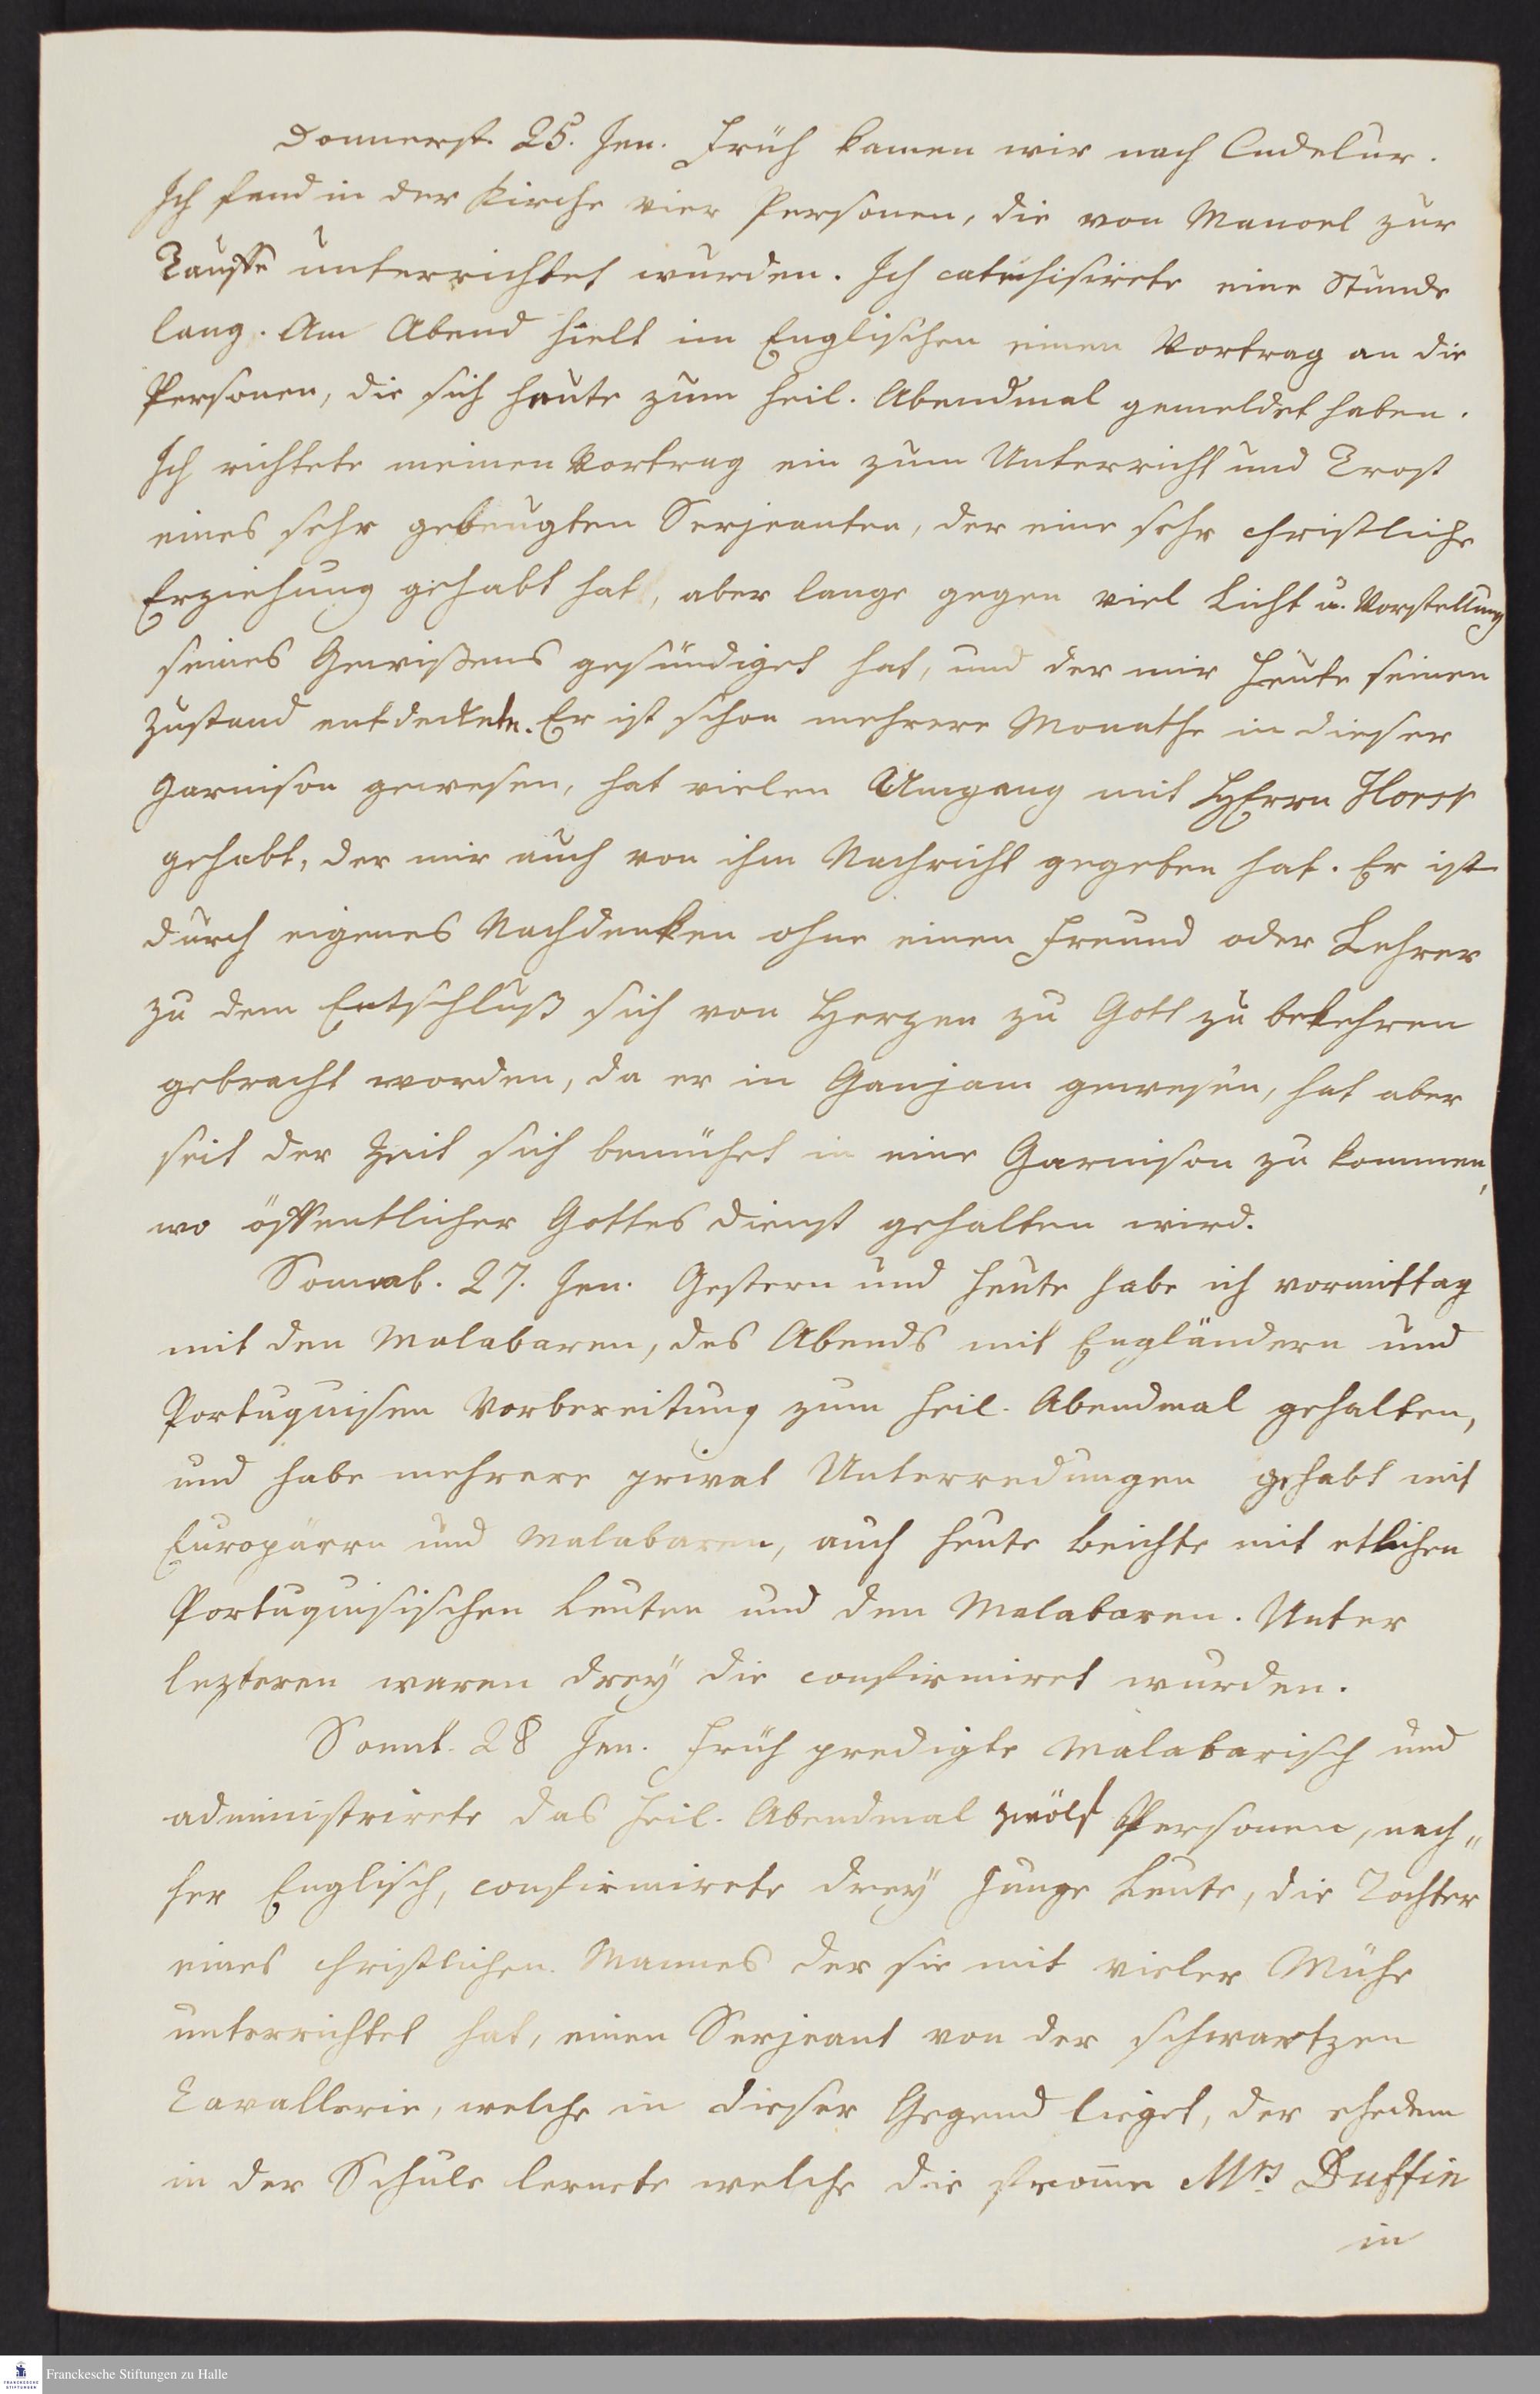 Donnerst. 25. Jan. Früh kamen wir nach Cudelur.
Ich fand in der Kirche vier Personen, die von Manoel zur
Tauffe unterrichtet wurden. Ich catechisirete eine Stunde
lang. Am Abend hielt im Englischen einen Vortrag an die
Personen, die sich heute zum heil. Abendmal gemeldet haben.
Ich richtete meinen Vortrag ein zum Unterricht und Trost
eines sehr gebeugten Serjeanten, der eine sehr christliche
Erziehung gehabt hat, aber lange gegen viel Licht u. Vorstellung
seines Gewißens gesündiget hat, und der mir heute seinen
Zustand entdeckete. Er ist schon mehrere Monathe in dieser
Garnison gewesen, hat vielen Umgang mit HErrn Horst
gehabt, der mir auch von ihm Nachricht gegeben hat. Er ist
durch eigenes Nachdenken ohne einen Freund oder Lehrer
zu dem Entschluß sich von Herzen zu Gott zu bekehren
gebracht worden, da er in Ganjam gewesen, hat aber
seit der Zeit sich bemühet in eine Garnison zu kommen,
wo öffentlicher Gottesdienst gehalten wird.
Sonnab. 27. Jan. Gestern und heute habe ich vormittag
mit den Malabaren, des Abends mit Engländern und
Portuguisen Vorbereitung zum heil. Abendmal gehalten,
und habe mehrere privat Unterredungen gehabt mit
Europäern und Malabaren, auch heute Beichte mit etlichen
Portuguisischen Leuten und den Malabaren. Unter
lezteren waren dreÿ die confirmiret wurden.
Sonnt. 28 Jan. Früh predigte Malabarisch und
administrirete das heil. Abendmal zwölf Personen, nach„
her Englisch, confirmirete dreÿ junge Leute, die Tochter
eines christlichen Mannes der sie mit vieler Mühe
unterrichtet hat, einen Serjeant von der schwartzen
Cavallerie, welche in dieser Gegend lieget, der ehedem
in der Schule lernete welche die from̄e Mrs Duffin
in
Franckesche Stiftungen zu Halle